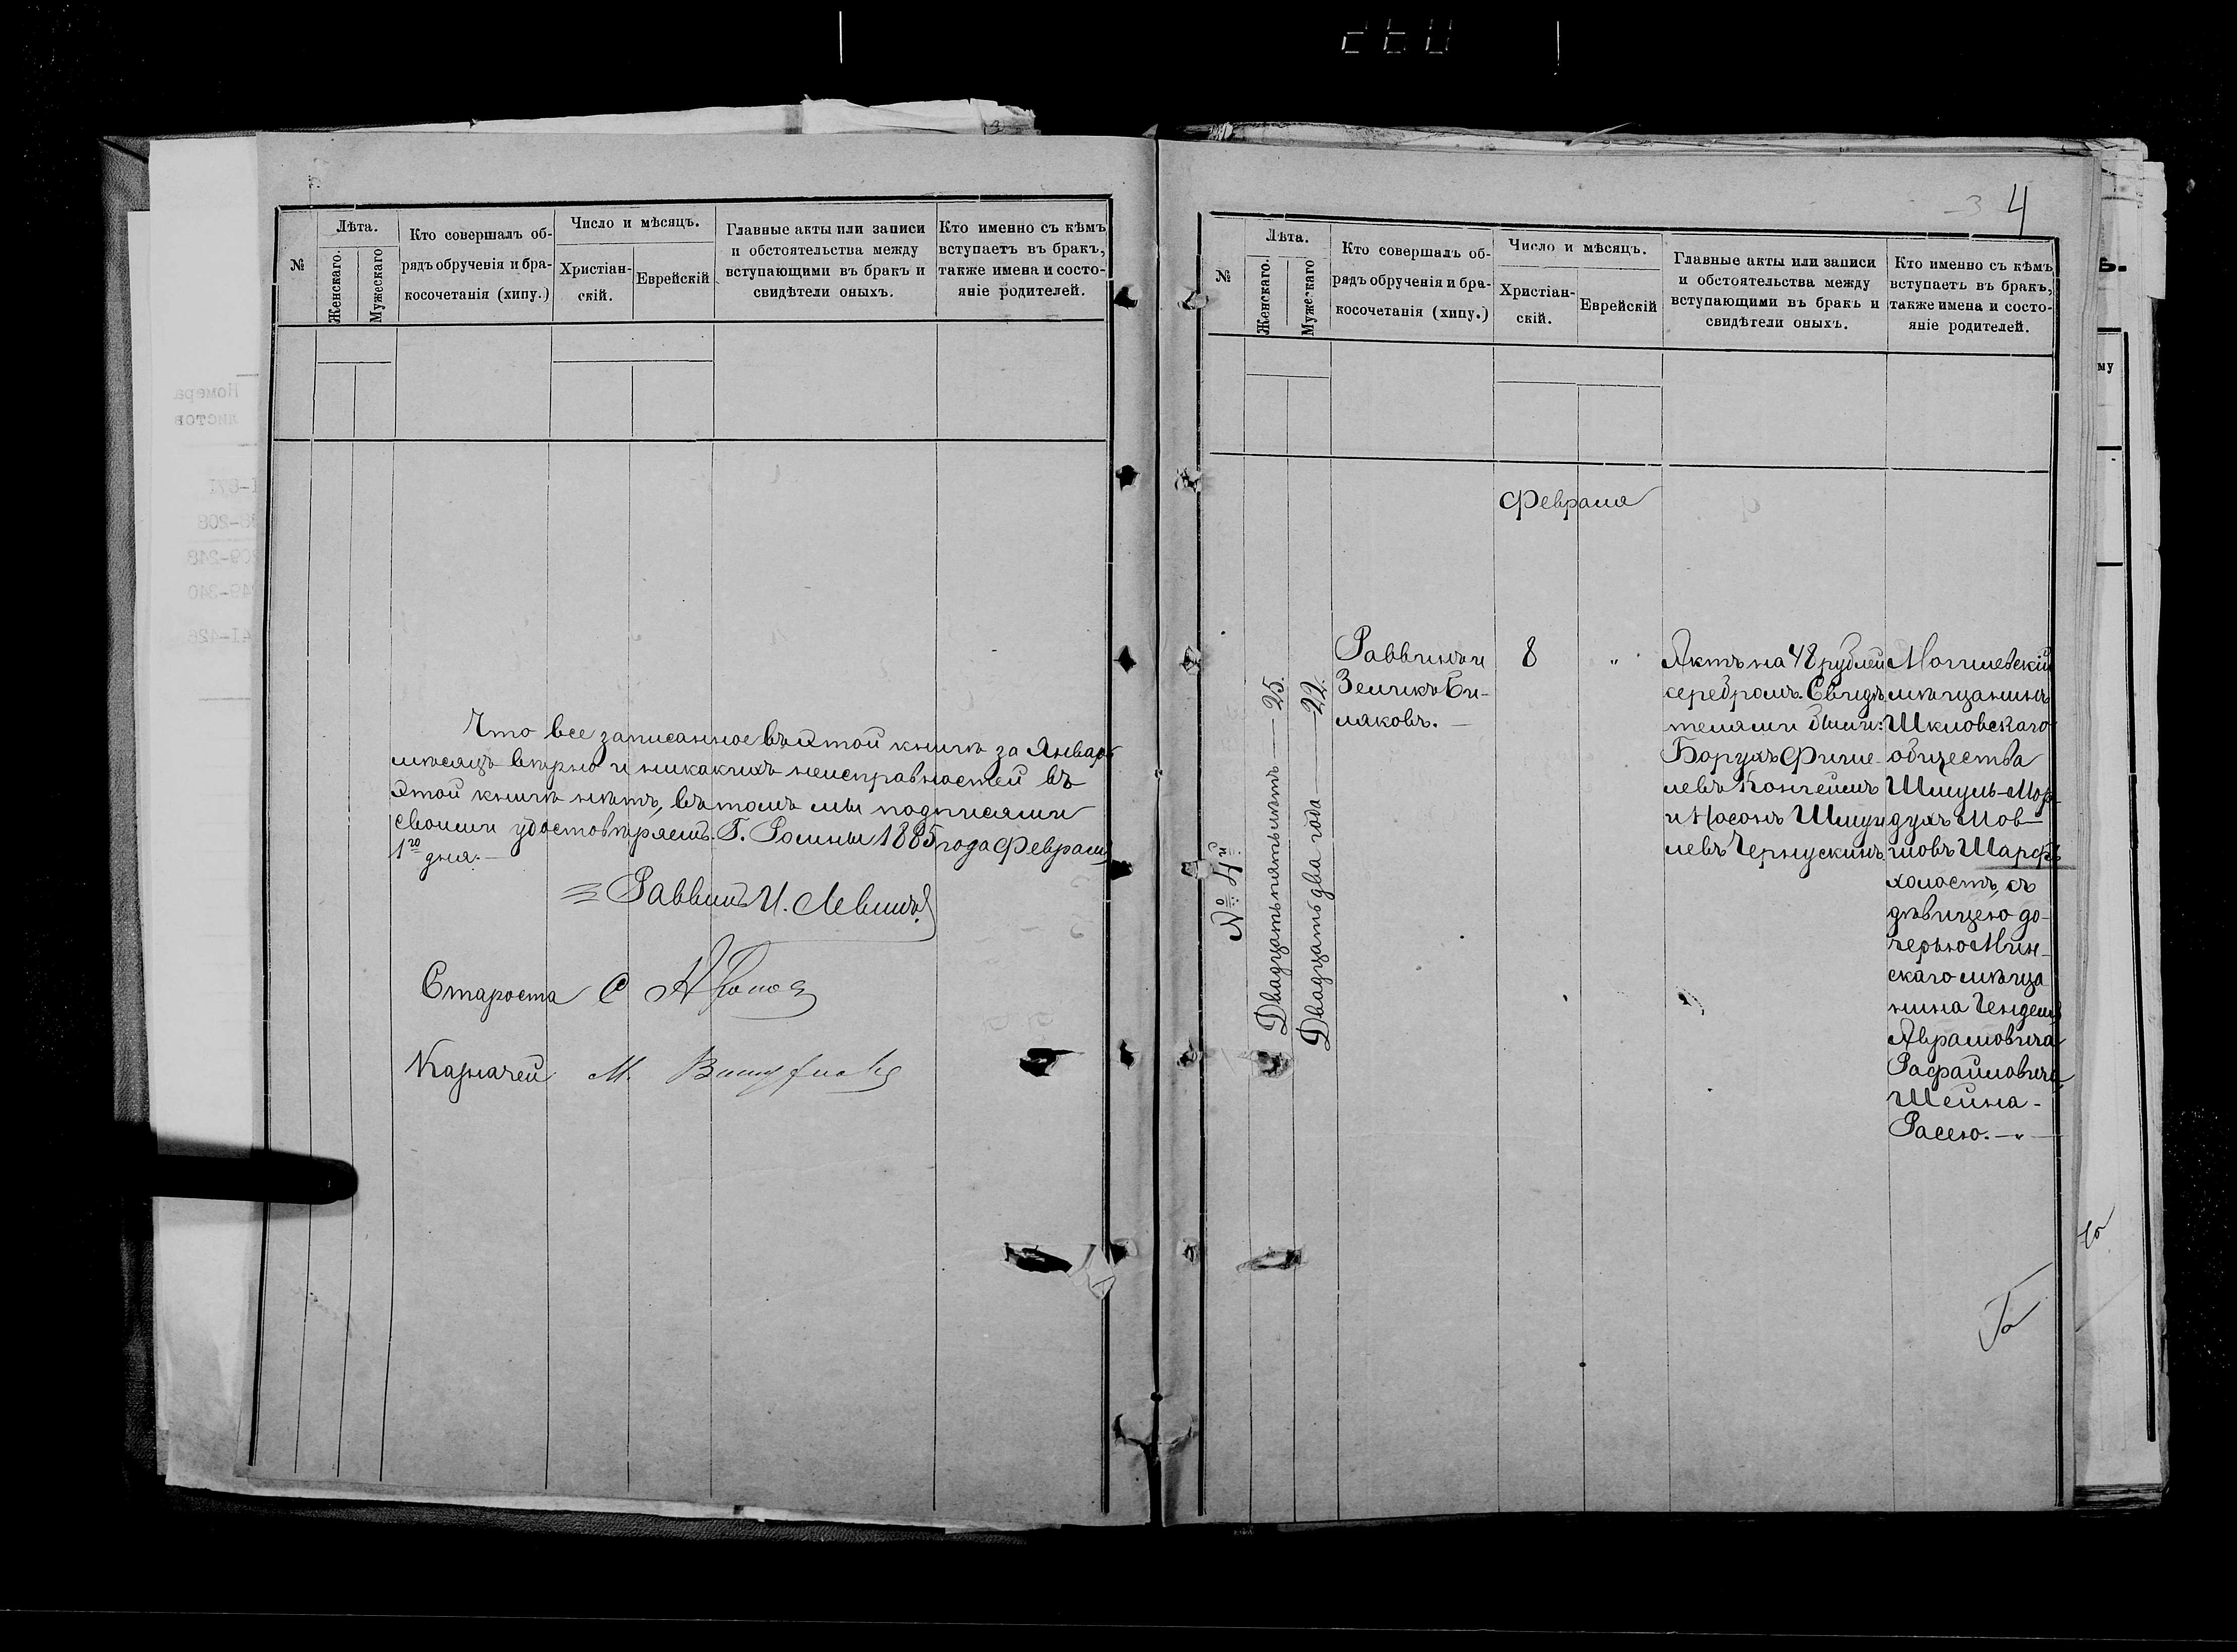 №
Лѣта.
Женскаго.
Мужескаго
Кто совершалъ об-
рядъ обрученія и бра-
косочетанія (хипу.)
Число и мѣсяцъ.
Христіан-
скій.
Еврейскій
Главные акты или записи
и обстоятельства между
вступающими въ бракъ и
свидѣтели оныхъ.
Кто именно съ кѣмъ
вступаетъ въ бракъ,
также имена и состо-
яніе родителей.
Что все записанное въ этой книгѣ за Январь
мѣсяцъ вѣрно и никакихъ неисправностей въ
этой книгѣ нѣтъ, въ томъ мы подписями
своими удостовѣряемъ. Г. Ромны 1885 года Февраля
1го дня.
Раввинъ И. Левинъ
Староста С
Казначей М.
3 4
№
Лѣта.
Женскаго.
Мужескаго
Кто совершалъ об-
рядъ обрученія и бра-
косочетанія (хипу.)
Число и мѣсяцъ.
Христіан-
скій.
Еврейскій
Главные акты или записи
и обстоятельства между
вступающими въ бракъ и
свидѣтели оныхъ.
Кто именно съ кѣмъ
вступаетъ въ бракъ,
также имена и состо-
яніе родителей.
Февраля
№ 4й
Двадцать пять лѣтъ — 25.
Двадцать два года — 22.
Раввинъ и
Зеликъ Би-
ляковъ. —
8
"
Актъ на 48 рублей
серебромъ. Свидѣ
телями были:
Борухъ Фише-
левъ
и Носонъ Шмуи
левъ Чернускинъ
Могилевскій
мѣщанинъ
Шкловскаго
общества
Шмуль-Мор-
духъ Мов-
шовъ Шарфъ
холостъ, съ
дѣвицею до-
черью Мин-
скаго мѣща
нина Гендель
Абрамовича
Рафаиловича
Шейна-
Расею. —"—